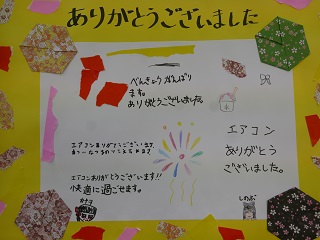 ありがとうございました
べんきょうがんばり
ます。
ありがとうございました。
エアコン
ありがとう
ございました。
エアコンありがとうございます
エアコンありがとうございます!!
快適に過ごせます。